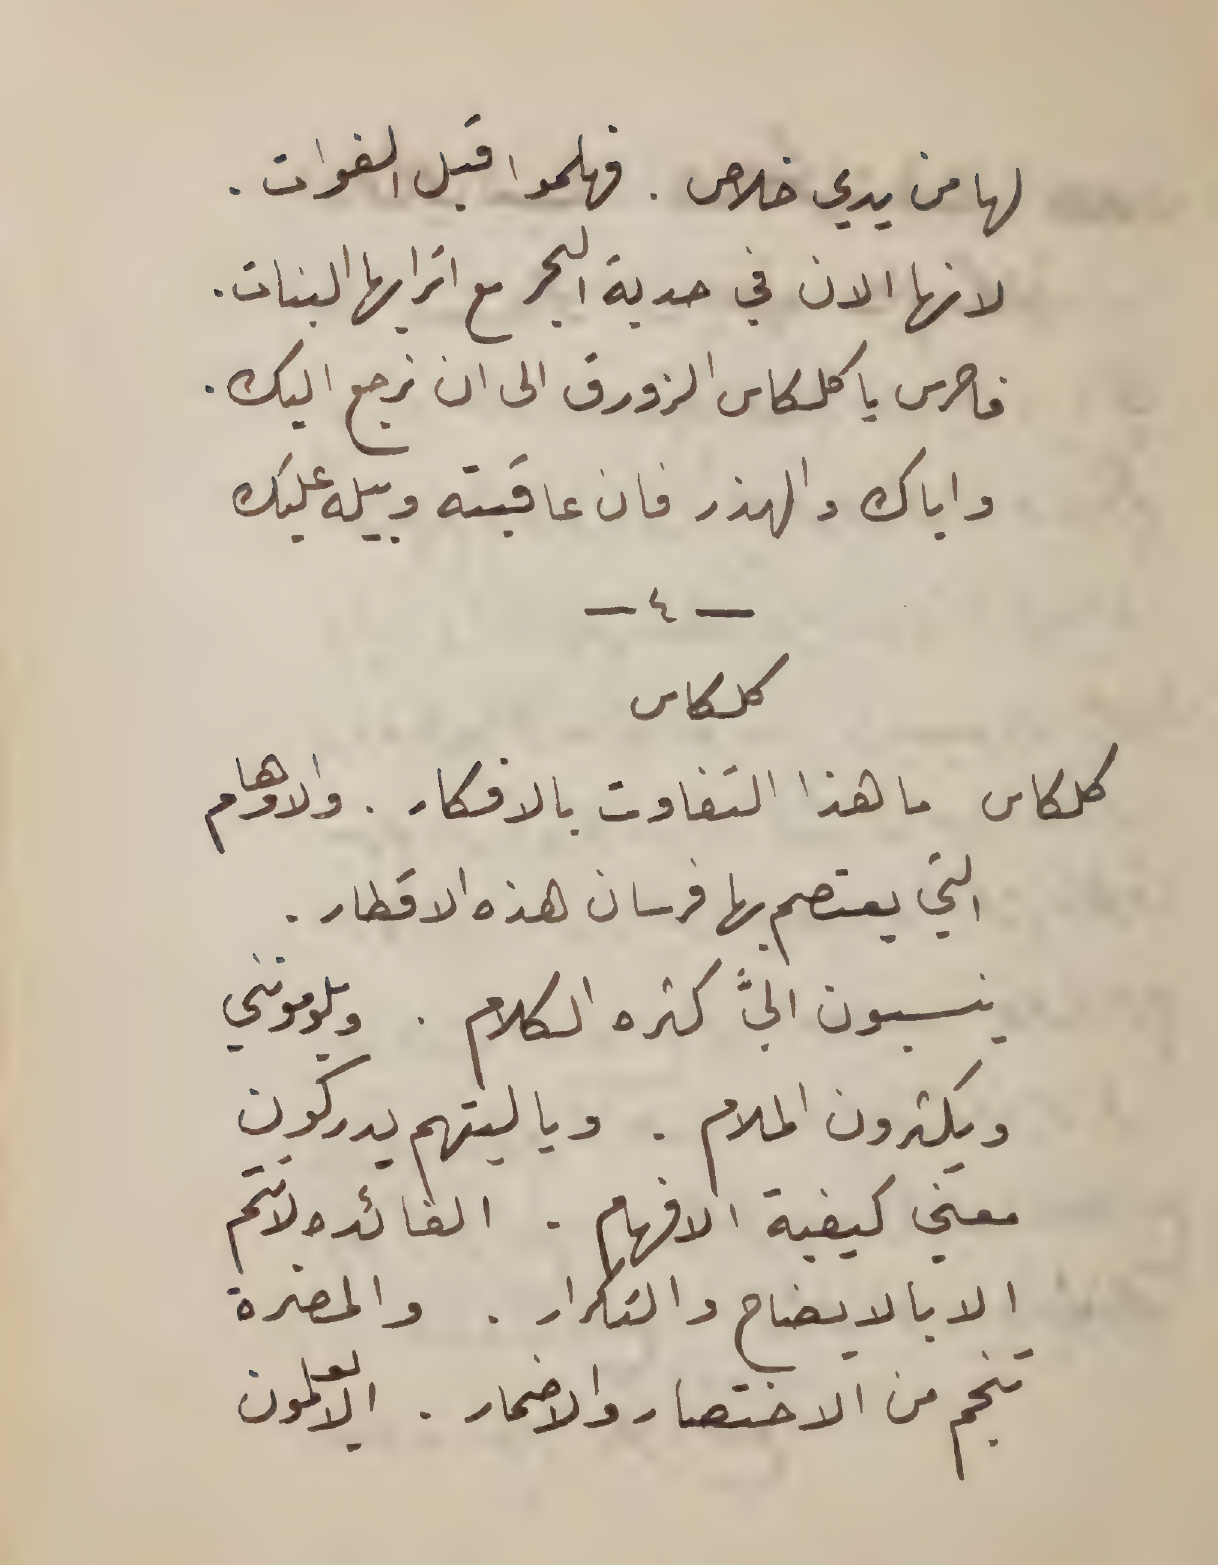 لها من يدي خلاص . فهلموا قبل الفوات .
لانها الان في حدبة البحر مع اترابها البنات .
فاحرس يا كلكاس الزورق الى ان نرجع اليك .
واياك والهذر فان عاقبته وبيله عليك
— ٤ —
كلكاس
كلكاس ما هذا التفاوت بالافكار . والاوهام
التي يعتصم بها فرسان هذه الاقطار .
ينسبون اليَّ كثره الكلام . ويلومونني
ويكثرون الملام . ويا ليتهم يدركون
معني كيفية الافهام . الفائده لا تتم
الا بالايضاح والتكرار . والمضرة
تنجم من الاختصار والاضمار . الا يعلمون